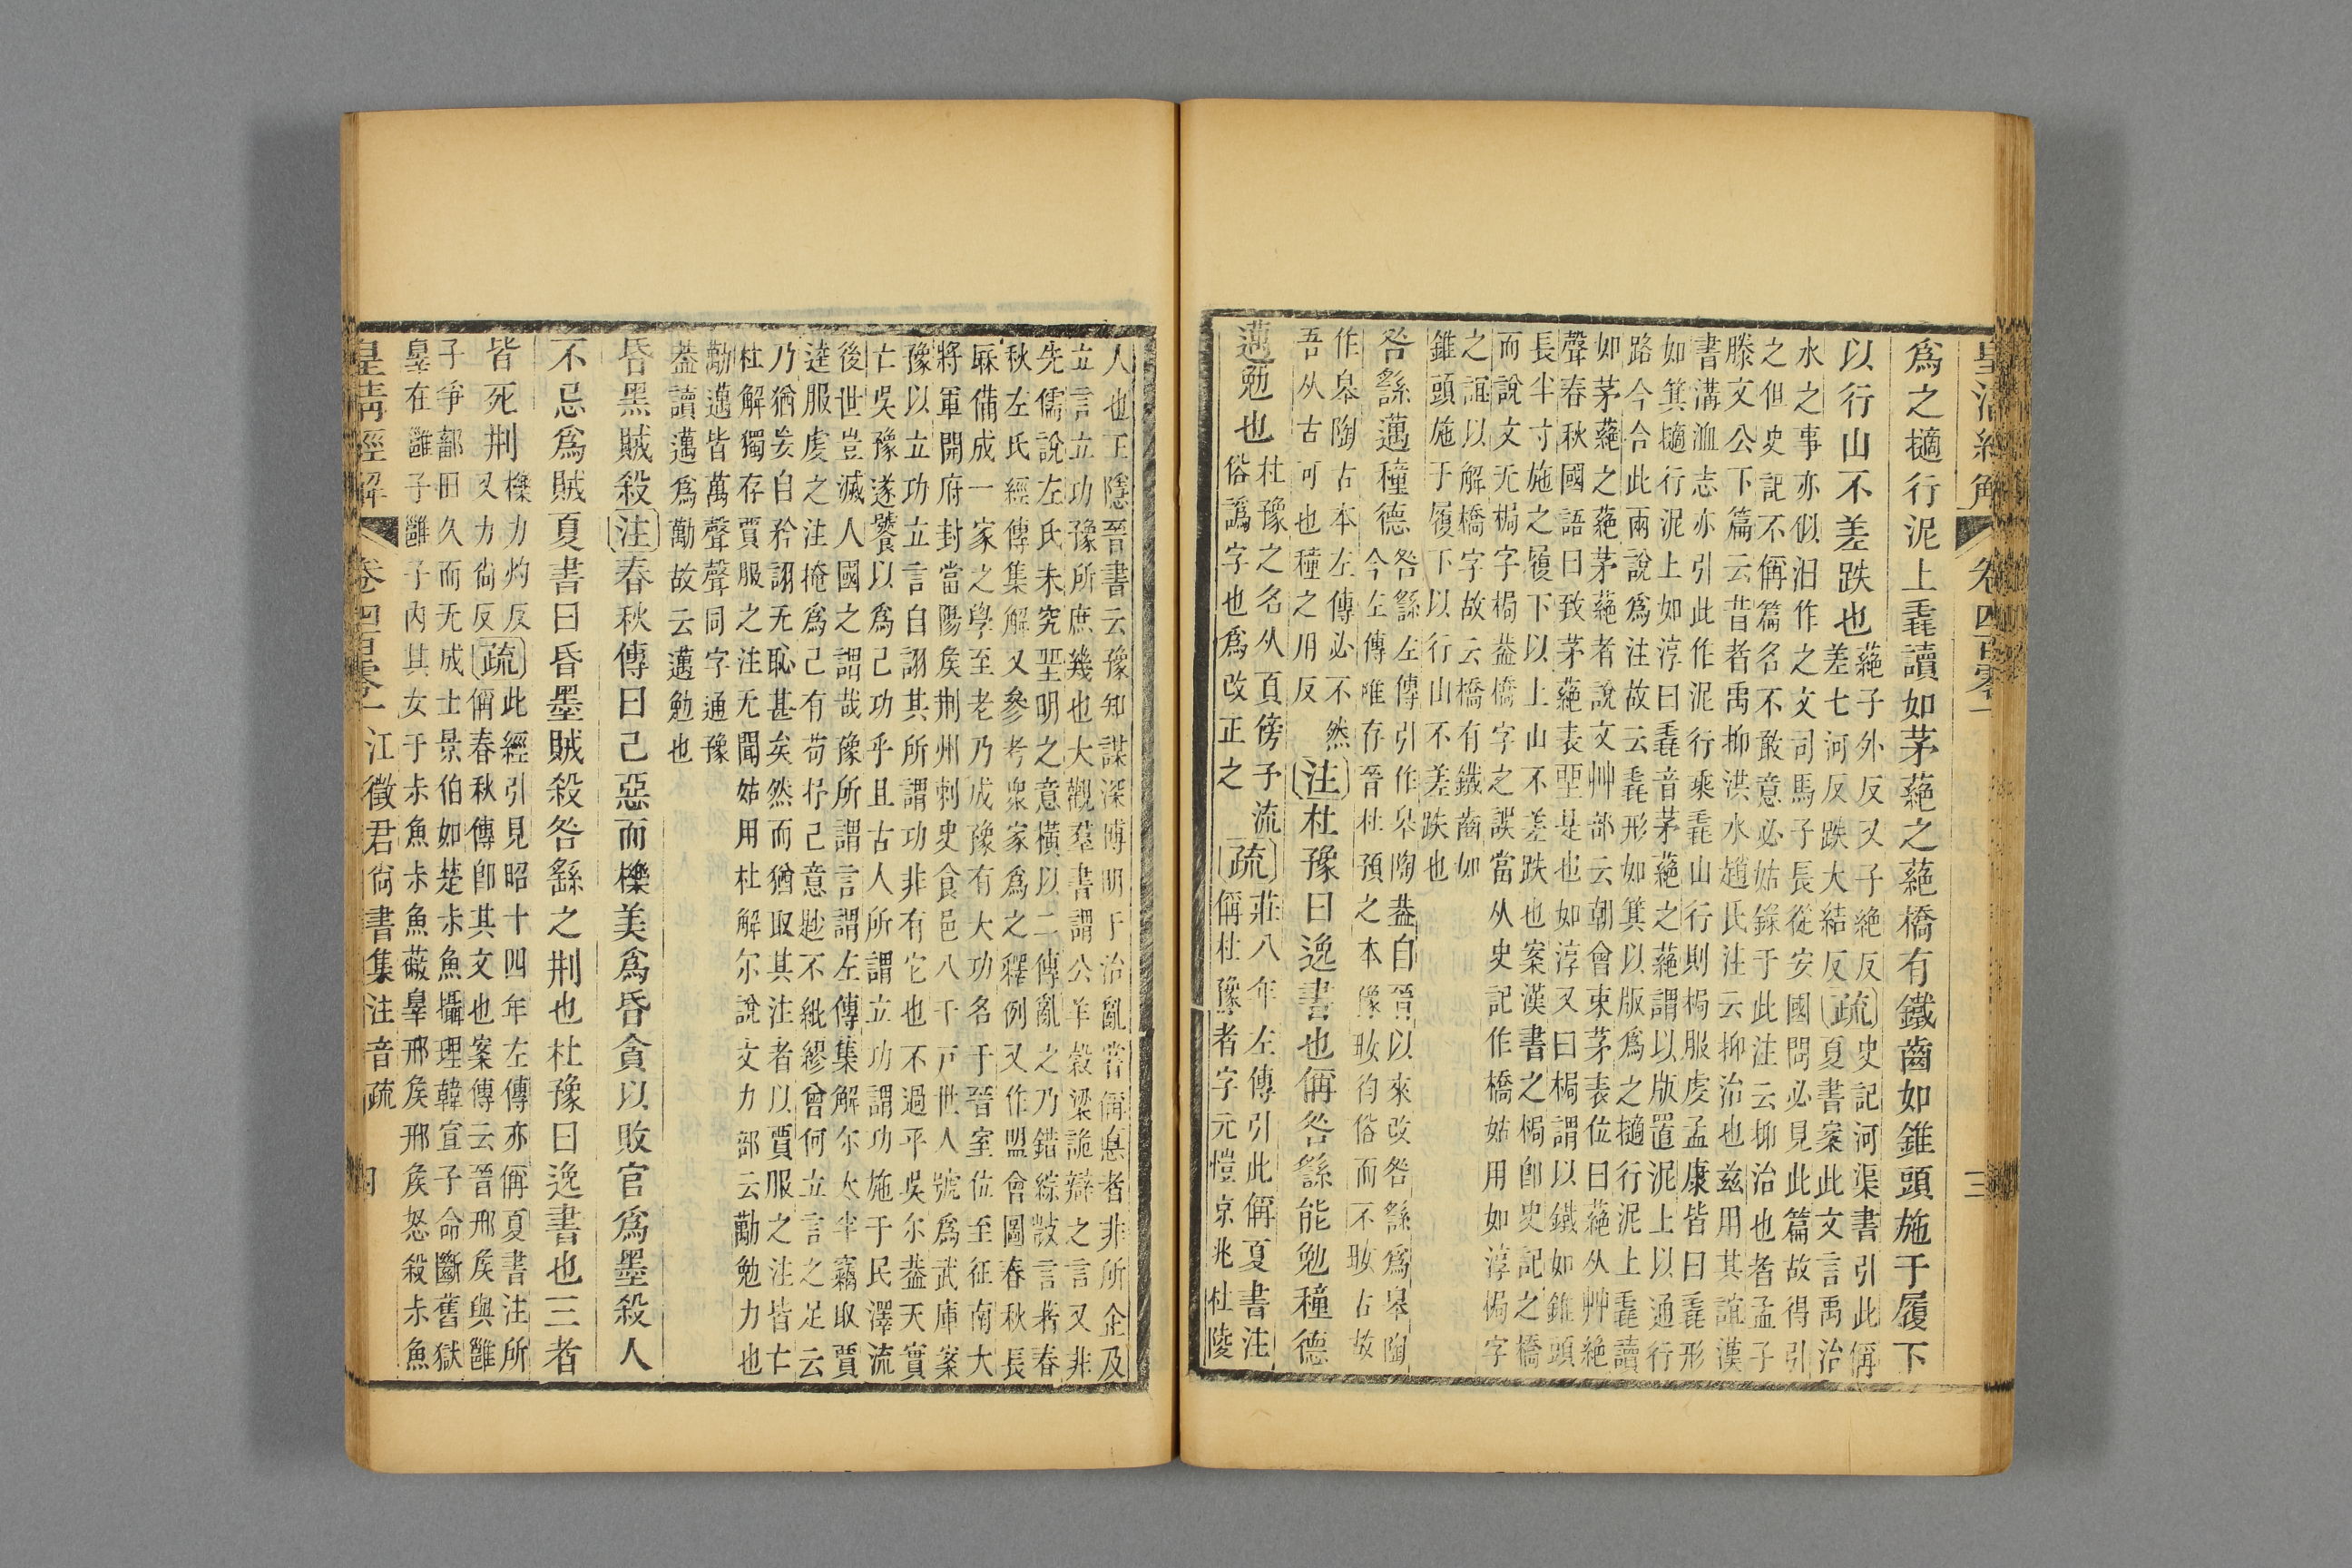 皇清經解 卷四百零一 三
爲之擿行泥上毳讀如茅蕝之蕝橋有鐵齒如錐頭施于履下
以行山不差跌也
蕝子外反又子絶反疏史記河渠書引此偁
差七河反跌大結反夏書案此文言禹治
水之事亦似汨作之文司馬子長從安國問必見此篇故得引
之但史記不偁篇名不敢意必姑錄于此注云抑治也者孟子
滕文公下篇云昔者禹抑洪水趙氏注云抑治也兹用其誼漢
書溝洫志亦引此作泥行乘毳山行則梮服虔孟康皆曰毳形
如箕擿行泥上如淳曰毳音茅蕝之蕝謂以版置泥上以通行
路今合此兩說爲注故云毳形如箕以版爲之擿行泥上毳讀
如茅蕝之蕝茅蕝者說文艸部云朝會束茅表位曰蕝从艸絶
聲春秋國語曰致茅蕝表是也如淳又曰梮謂以鐵如錐頭
長半寸施之履下以上山不差跌也案漢書之梮卽史記之橋
而說文无梮字梮葢橋字之誤當从史記作橋姑用如淳梮字
之誼以解橋字故云橋有鐵齒如
錐頭施于履下以行山不差跌也
咎繇邁種德
咎繇左傳引作皋陶葢自晉以來改咎繇爲皋陶
今左傳唯存晉杜預之本豫㕁徇俗而不㕁古故
作皋陶古本左傳必不然
吾从古可也種之用反
注杜豫曰逸書也偁咎繇能勉種德
邁勉也
杜豫之名从頁傍予流
俗譌字也爲改正之
疏莊八年左傳引此偁夏書注
偁杜豫者字元愷京兆杜陵
人也王隱晉書云豫知謀深博明于治亂嘗偁悳者非所企及
立言立功豫所庶幾也大觀羣書謂公羊榖梁詭辯之言又非
先儒說左氏未究明之意橫以二傳亂之乃錯綜㪚言著春
秋左氏經傳集解又參考衆家爲之釋例又作盟會圖春秋長
厤備成一家之學至老乃成豫有大功名于晉室位至征南大
將軍開府封當陽矦荆州刺史食邑八千戸世人號爲武庫案
豫以立功立言自詡其所謂功非有它也不過平吳尔葢天實
亡吳豫遂饕以爲己功乎且古人所謂立功謂功施于民澤流
後世豈滅人國之謂哉豫所謂言謂左傳集解尔大半竊取賈
逵服虔之注掩爲己有苟抒己意尠不紕繆曾何立言之足云
乃猶妄自矜詡无恥甚矣然而猶取其注者以賈服之注皆亡
杜解獨存賈服之注无聞姑用杜解尔說文力部云勱勉力也
勱邁皆萬聲聲同字通豫
葢讀邁爲勱故云邁勉也
昏黑賊殺注春秋傳曰己惡而㩰美爲昏貪以敗官爲墨殺人
不忌爲賊夏書曰昏墨賊殺咎繇之荆也杜豫曰逸書也三者
皆死荆
㩰力灼反
又力尙反
疏此經引見昭十四年左傳亦偁夏書注所
偁春秋傳卽其文也案傳云晉邢矦與雝
子爭鄐田久而无成士景伯如楚尗魚攝理韓宣子命斷舊獄
辠在雝子雝子內其女于尗魚尗魚蔽辠邢矦邢矦怒殺尗魚
皇清經解 卷四百零一 江徵君尙書集注音疏 四